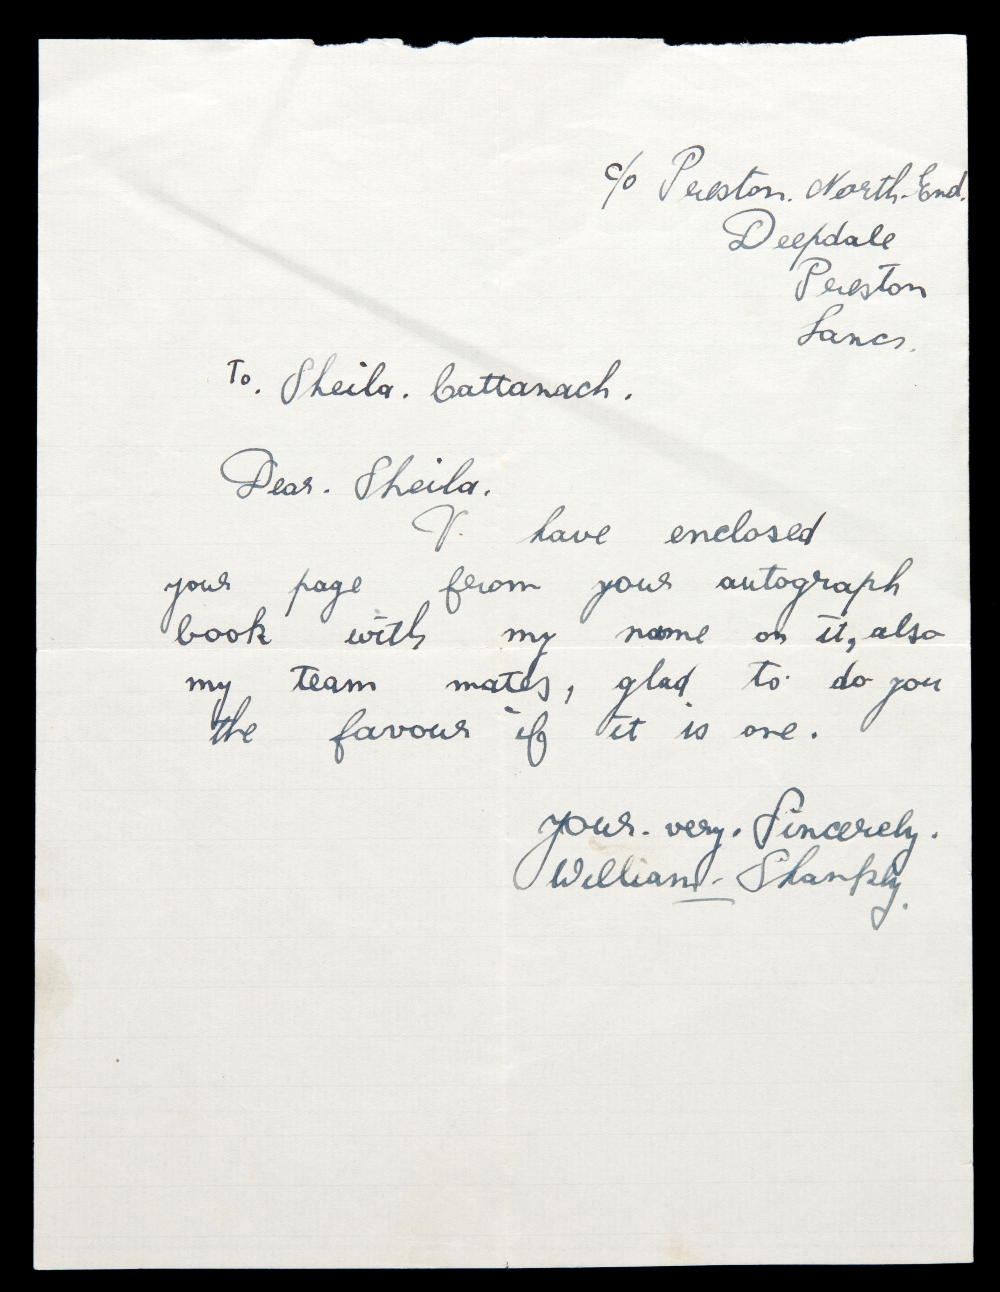 c/o Preston. North-End.
Deepdale
Preston
Lancs.
To. Sheila. Cattanach.
Dear. Sheila.
I have enclosed
your page from your autograph
book with my name on it, also
my team mates, glad to do you
the favour if it is one.
yours. very. Sincerely.
William - Shankly.